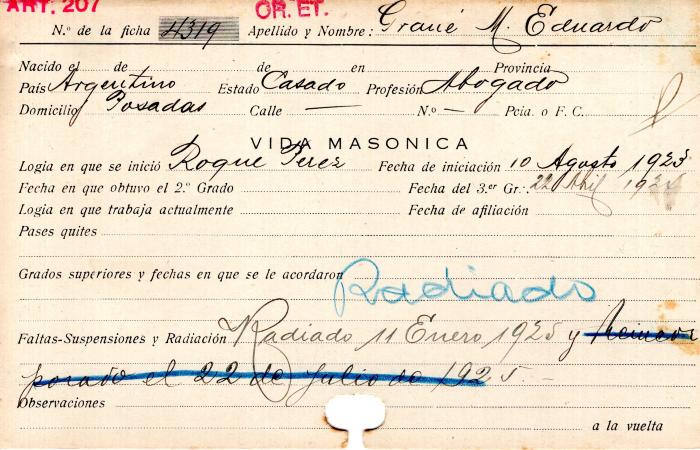 ART. 207 OR. ET.
N.º de la ficha 4319 Apellido y Nombre: Grané M. Eduardo
Nacido el de de en Provincia
País Argentino Estado Casado Profesión Abogado
Domicilio Posadas Calle — N.º — Pcia. o F. C.
VIDA MASONICA
Logia en que se inició Roque Perez Fecha de iniciación 10 Agosto 1923
Fecha en que obtuvo el 2.º Grado Fecha del 3.er Gr. 22 Abril
Logia en que trabaja actualmente Fecha de afiliación
Pases quites
Grados superiores y fechas en que se le acordaron Radiado
Faltas-Suspensiones y Radiación Radiado 11 Enero 1925 y Reincor
porado el 22 de Julio de 1925 -
Observaciones
a la vuelta